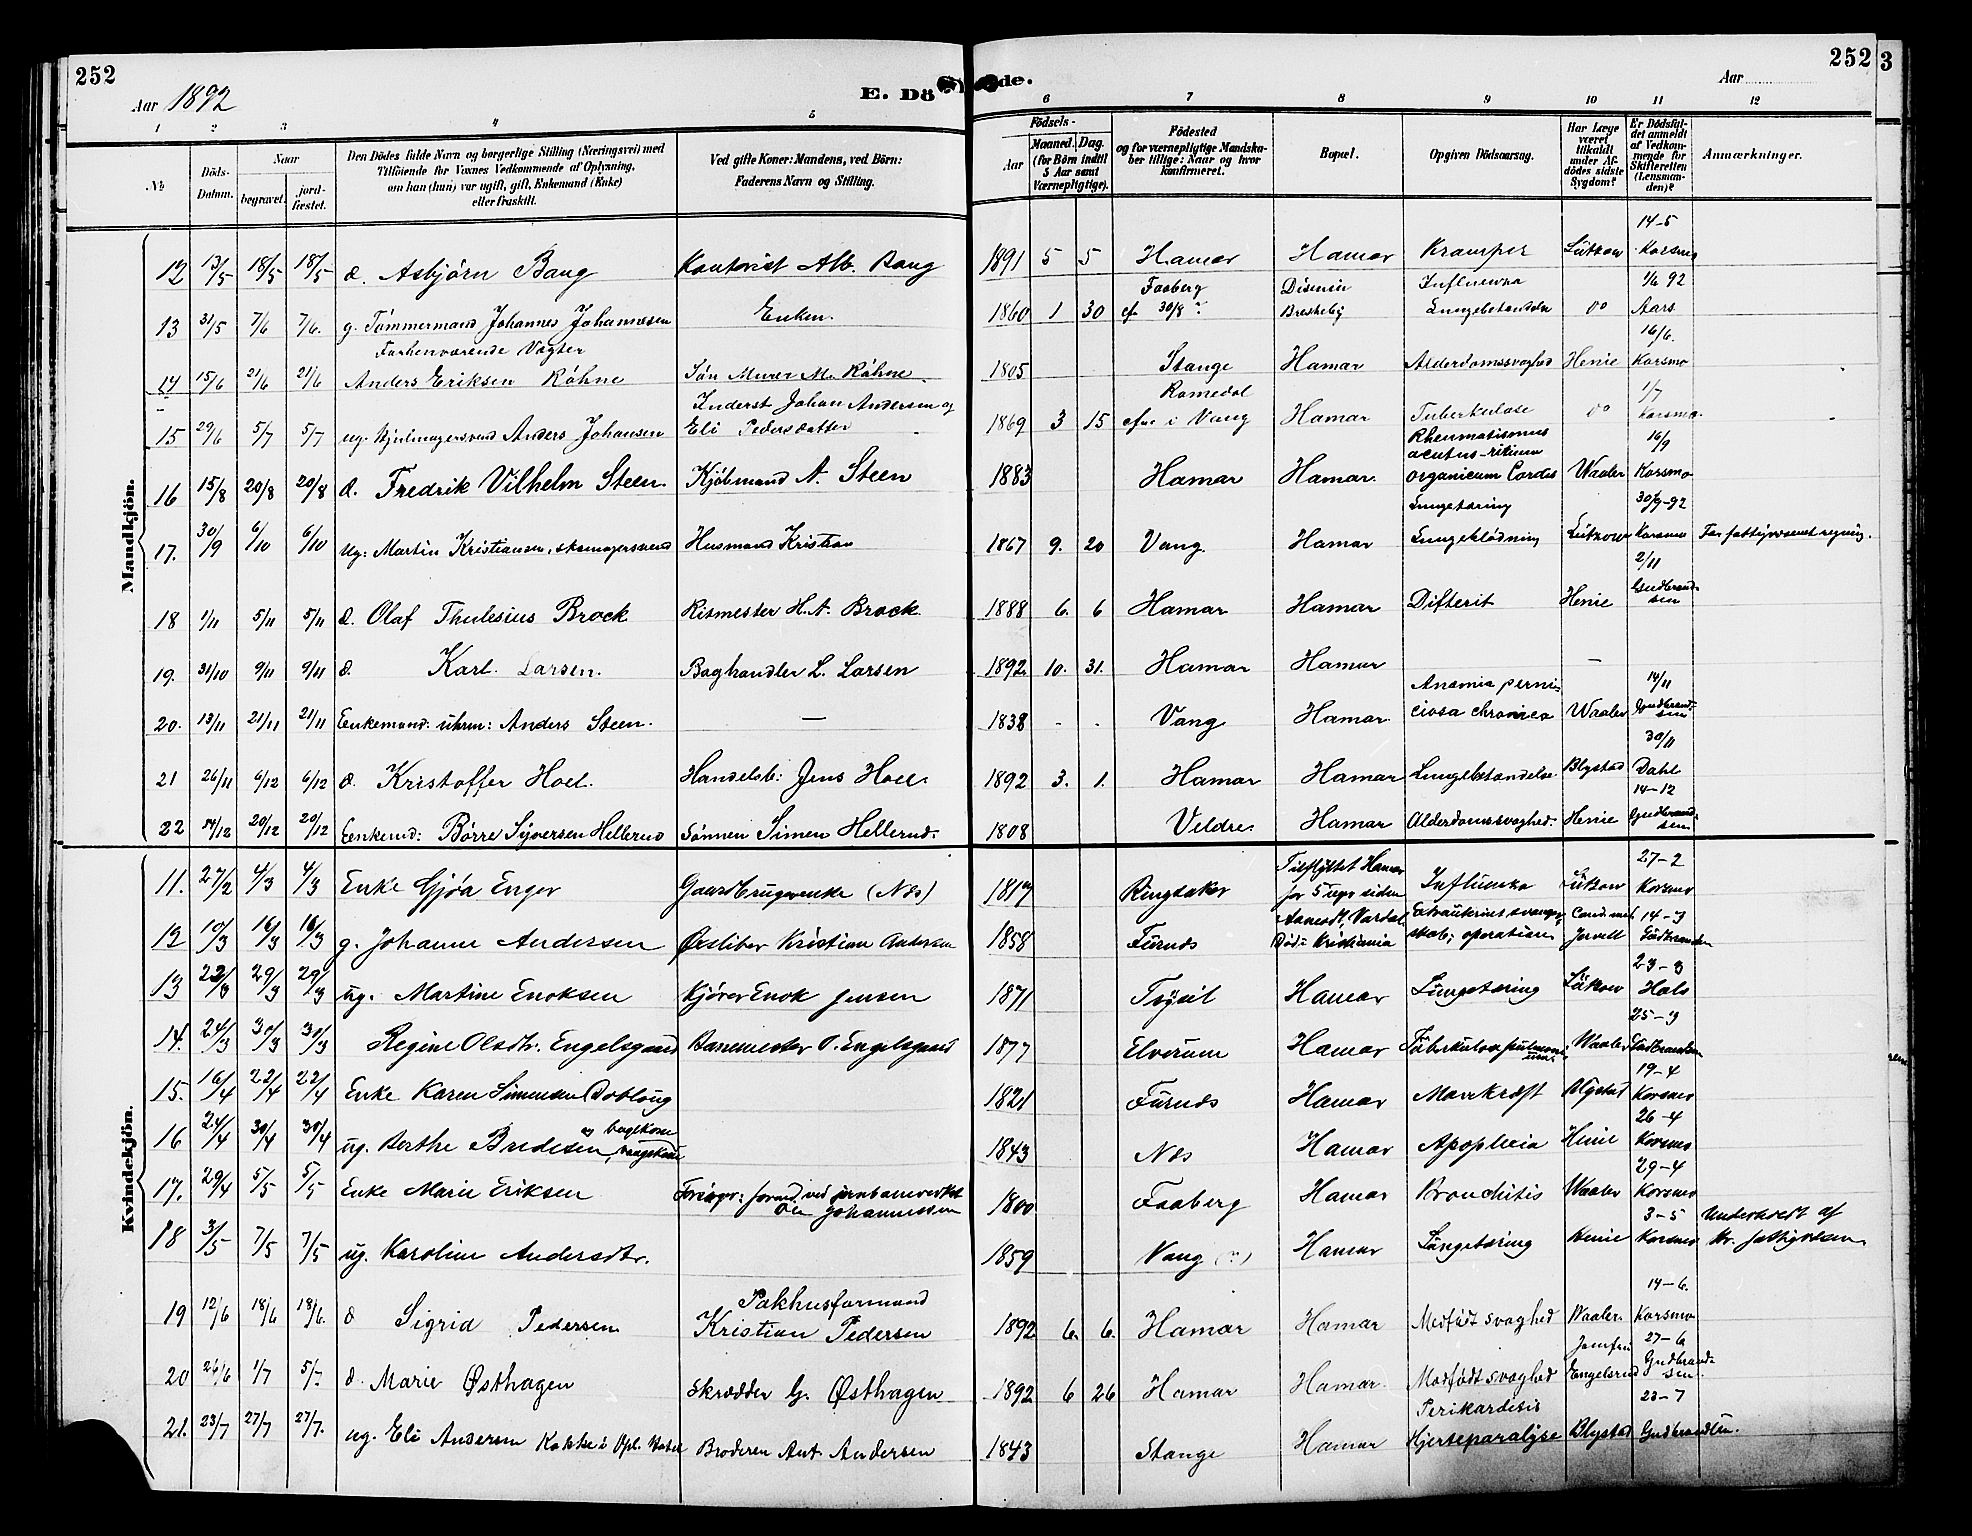 252
Aar 1892
E. Dö
de.
Aar
252
3
1 2 3 4 5 6 7 8 9 10 11 12
No
Döds-Datum.
Naar
begravet.
jord-fæstet.
Den Dödes fulde Navn og borgerlige Stilling (Næringsvei) med
Tilföiende for Voxnes Vedkommende af Oplysning,
om han (hun) var ugift, gift, Enkemand (Enke)
eller fraskilt.
Ved gifte Koner: Mandens, ved Börn:
Faderens Navn og Stilling.
Födsels-
Aar
Maaned. Dag.
(for Börn indtil
5 Aar samt
Værnepligtige).
Födested
og for værnepligtige Mandska-
ber tillige: Naar og hvor
konfirmeret.
Bopæl.
Opgiven Dödsaarsag.
Har Læge
været
tilkaldt
under Af-
dödes sidste
Sygdom?
Er Dödsfal-
det anmeldt
af Vedkom-
mende for
Skifteretten
(Lensman-
den)?
Anmærkninger.
Mandkjön.
14-5
12 13/5 18/5 18/5 d. Asbjørn Bang Kontorist Alb. Bang 1891 5 5 Hamar Hamar Kramper Lützow Korsmo
Faaberg Influenza 1/6 92
13 31/5 7/6 7/6. g. Tömmermand Johannes Johannesen Enken. 1860 1 30 Lungebetændelse do Aars
Forhenværende Vægter 16/6.
14 15/6 21/6 21/6 Anders Eriksen Røhne Søn Murer M. Røhne 1805 Stange Hamar Alderdomssvaghed Henie Korsmo
Inderst Johan Andersen og Romedal 1/7
15 29/6 5/7 5/7 ug. Hjulmagersvend Anders Johansen Eli Pedersdatter 1869 3 15 i Vang Hamar Tuberkulose do Korsmo.
Rheumatismus 16/9
acutus-
16 15/8 20/8 20/8 d. Fredrik Vilhelm Steen. Kjøbmand A. Steen 1883 Hamar Hamar. organicum Cordis Waaler Korsmo
Lungetæring 30/9-92
17. 30/9 6/10 6/10 ug: Martin Kristiansen, skomagersvend Husmand Kristian 1867 9. 20 Vang. Hamar Lungeblødning Lützow Korsmo For fattigvæsenets regning.
2/11
18 1/11 5/11 5/11 d. Olaf Thulesius Brock. Ritmester H. A. Brock. 1888 6. 6 Hamar Hamar Difterit Henie Gudbrand-
sen
19. 31/10 9/11 9/11 d. Karl Larsen. Boghandler L. Larsen 1892 10. 31. Hamar Hamar —
Anæmia perni- 14/11
20. 13/11 21/11 21/11 Enkemand: uhrm: Anders Steen. — 1838 - - Vang Hamar ciosa chronica Waaler Gudbrand-
sen
30/11
21 26/11 6/12 6/12 d. Kristoffer Hoel. Handelsb: Jens Hoel. 1892 3. 1. Hamar Hamar Lungebetændelse Blystad Dahl
14-12
22 14/12 20/12 20/12 Enkemd: Børre Syversen Hellerud Sønnen Simen Hellerud. 1808 Veldre. Hamar Alderdomssvaghed. Henie Gudbrand-
sen
Kvindekjön.
Tilflyttet Hamar 27-2
11. 27/2 4/3 4/3 Enke Gjøa Enger Gaardbrugerenke (Næs) 1817 Ringsaker for 5 Uger siden Influenza Lützow Korsmo
Aamodt, Vardal Extrauterint svanger- Cand.med. 14-3
12 10/3 16/3 16/3 g. Johanne Andersen Kristian Andersen 1858 Furnæs Død: Kristiania skab; operation Jervell Gudbrandsen
23-3
13 22/3 29/3 29/3 ug. Martine Enoksen Kjører Enok Jensen 1871 Trysil Hamar Lungetæring Lützow Hals
25-3
14. 24/3 30/3 30/3 Regine Olsdtr. Engelsgaard Banemester O. Engelsgaard 1877 Elverum Hamar Tuberkulose pulmon-
um. Waaler Gudbrandsen
19-4
15. 16/4 22/4 22/4 Enke Karen Simensen Dobloug 1821 Furnæs Hamar Mavekræft Blystad Korsmo
bagekone 26-4
16 24/4 30/4 30/4 ug. Berthe Bredesen, vaagekone 1843 Næs Hamar Apoplexia Henie Korsmo
29-4
17. 29/4 5/5 5/5 Enke Marie Eriksen ved jernbaneverket
Ole Johannessen 1800 Faaberg Hamar Bronchitis Waaler Korsmo
3-5 Underholdt af
18 3/5 7/5 7/5 ug. Karoline Andersdtr. 1859 Vang (?) Hamar Lungetæring Henie Korsmo Hr. fattigvæsen
Pakhusformand 14-6.
19 12/6 18/6 18/6. d Sigrid Pedersen Kristian Pedersen 1892 6. 6. Hamar Hamar Medfödt svaghed Waaler. Korsmo
Jomfru 27-6
20 26/6 1/7 5/7 d. Marie Østhagen Skrædder G. Østhagen 1892 6 26 Hamar Hamar. Medfødt svaghed Engelsrud Gudbrand-
sen.
Perikarditis 23-7
21. 23/7 27/7 27/7. ug. Eli Andersen Kokke i Opl. Hotel Broderen Ant. Andersen 1843 Stange Hamar Hjerteparalyse Blystad Gudbrandsen.